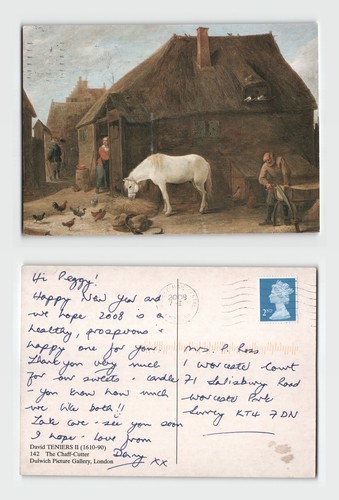 Hi Peggy!
Happy New Year and
we hope 2008 is a
healthy, prosperous &
happy one for you
Thank you very much
for our sweets & candle
- you know how much
we like both!!
Take care - see you soon
I hope - love from
xx
David TENIERS II (1610-90)
142 The Chaff-Cutter
Dulwich Picture Gallery, London
2008
2ND
Mrs. P. Ross
1 Worcester Court
71 Salisbury Road
Worcester Park
Surrey KT4 7DN